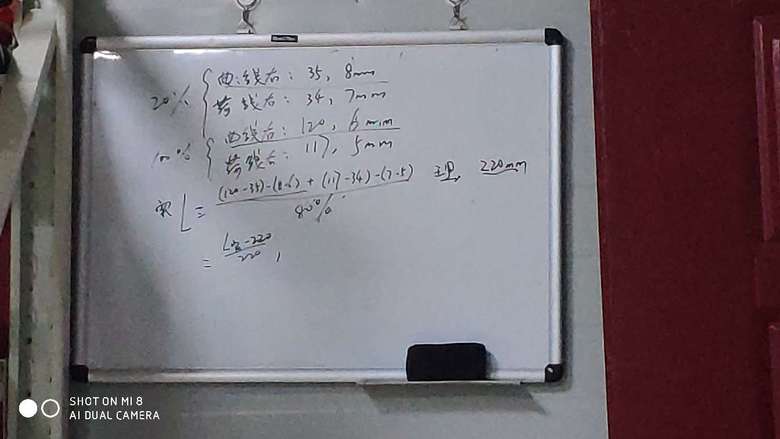 20% { 曲线右: 35, 8mm
线右: 34, 7mm
100% { 曲线右: 120, 6mm
线右: 117, 5mm
实 L = (120-35)-(8-6)+(117-34)-(7-5) / 80% 理 220mm
= L实-220 / 220,
SHOT ON MI 8
AI DUAL CAMERA